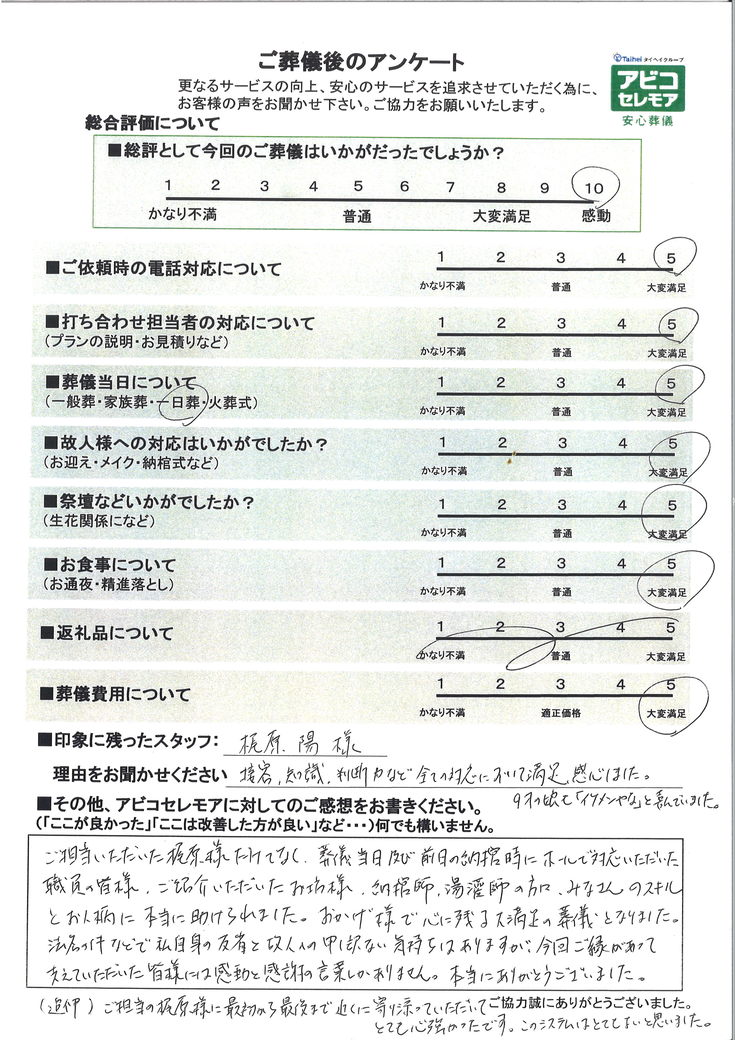 ご葬儀後のアンケート
Taihei タイヘイグループ
アビコ
セレモア
安心葬儀
更なるサービスの向上、安心のサービスを追求させていただく為に、
お客様の声をお聞かせ下さい。ご協力をお願いいたします。
総合評価について
■総評として今回のご葬儀はいかがだったでしょうか?
1 2 3 4 5 6 7 8 9 10
かなり不満 普通 大変満足 感動
■ご依頼時の電話対応について
1 2 3 4 5
かなり不満 普通 大変満足
■打ち合わせ担当者の対応について
(プランの説明・お見積りなど)
1 2 3 4 5
かなり不満 普通 大変満足
■葬儀当日について
(一般葬・家族葬・一日葬・火葬式)
1 2 3 4 5
かなり不満 普通 大変満足
■故人様への対応はいかがでしたか?
(お迎え・メイク・納棺式など)
1 2 3 4 5
かなり不満 普通 大変満足
■祭壇などいかがでしたか?
(生花関係になど)
1 2 3 4 5
かなり不満 普通 大変満足
■お食事について
(お通夜・精進落とし)
1 2 3 4 5
かなり不満 普通 大変満足
■返礼品について
1 2 3 4 5
かなり不満 普通 大変満足
■葬儀費用について
1 2 3 4 5
かなり不満 適正価格 大変満足
■印象に残ったスタッフ: 梶原 陽 様
理由をお聞かせください 接客,知識,判断力など全ての対応において満足,感心しました。
「イケメンやな」と喜んでいました。
■その他、アビコセレモアに対してのご感想をお書きください。
(「ここが良かった」「ここは改善した方が良い」など・・・)何でも構いません。
ご担当いただいた梶原様だけでなく、葬儀当日及び前日の納棺時にホールで対応いただいた
職員の皆様、ご紹介いただいたお坊様、納棺師、湯灌師の方々、みなさんのスキル
とお人柄に本当に助けられました。おかげ様で心に残る大満足の葬儀となりました。
法名の件などで私自身の反省と故人への申し訳ない気持ちはありますが、今回ご縁があって
支えていただいた皆様には感動と感謝の言葉しかありません。本当にありがとうございました。
(追伸) ご担当の梶原様に最初から最後まで近くに寄り添っていただいて
ご協力誠にありがとうございました。
とても心強かったです。このシステムはとても良いと思いました。